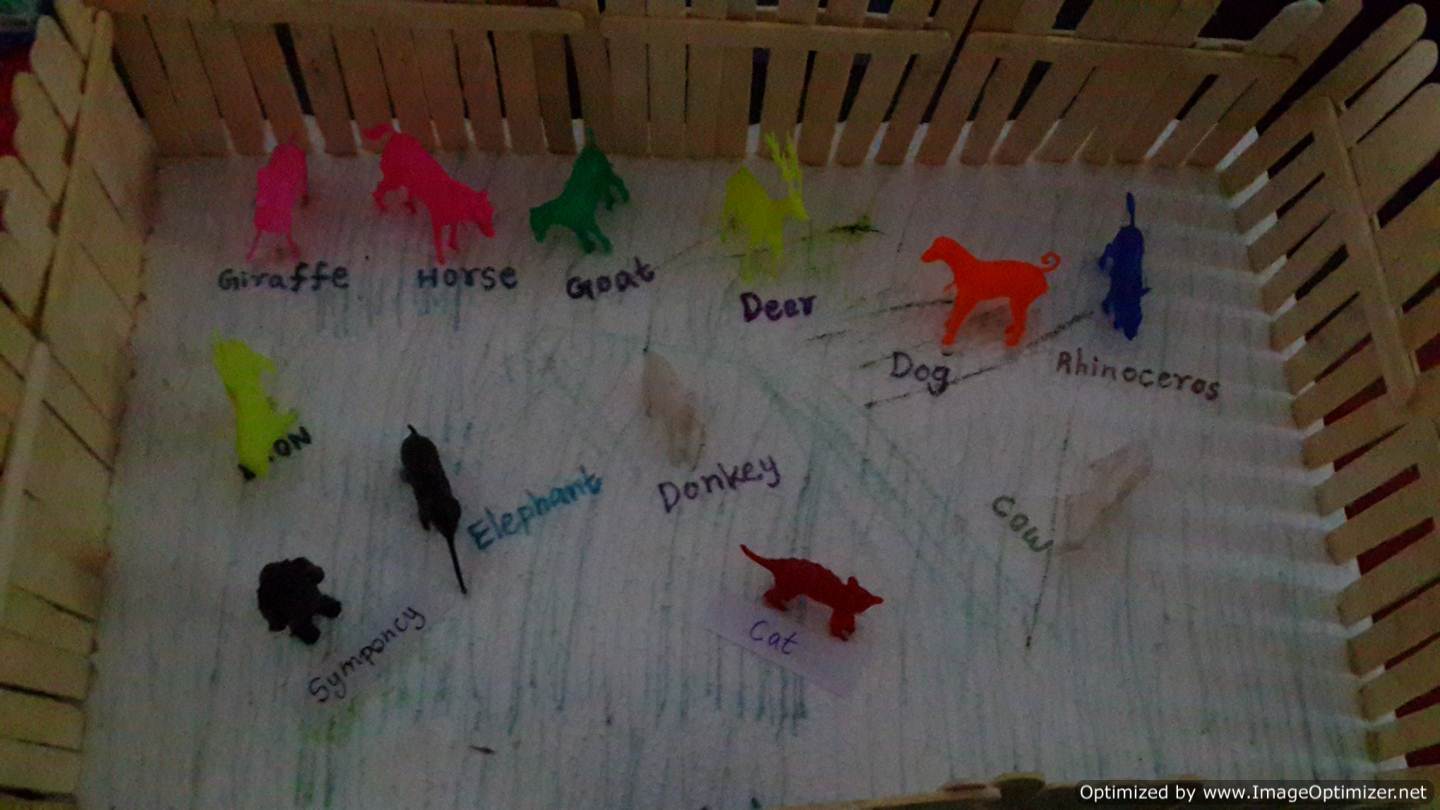 Giraffe
Horse
Goat
Deer
Dog
Rhinoceros
Elephant
Donkey
Cow
Symponcy
Cat
Optimized by www.ImageOptimizer.net